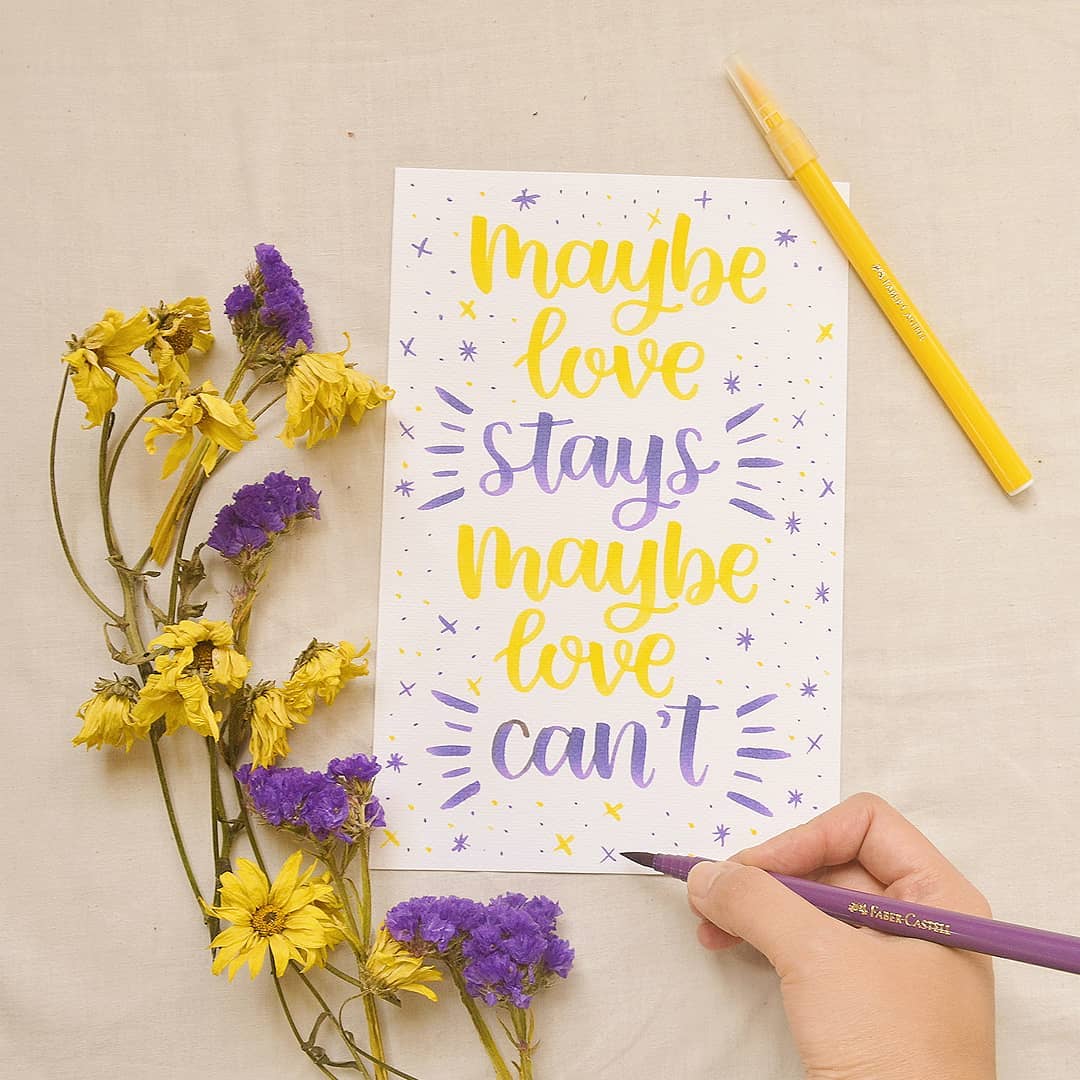 maybe
love
stays
maybe
love
can't
FABER-CASTELL
FABER-CASTELL